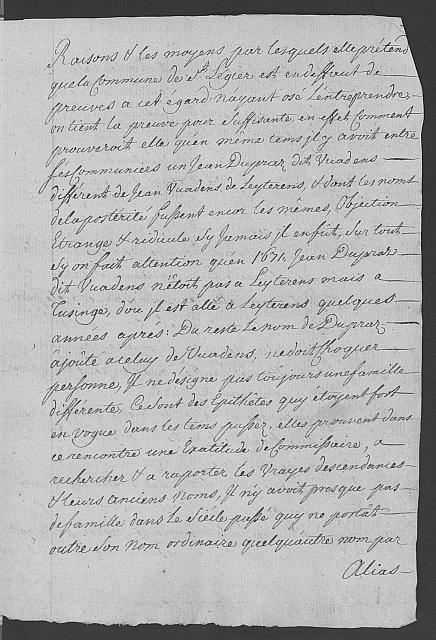 Raisons & les moyens par lesquels elle prétend
que la Commune de St. Légier est en deffaut de
preuves a cet égard. N'ayant osé l'entreprendre,
on tient la preuve pour suffisante, en effet comment
prouveroit elle qu'en même tems jl y avoit entre
ses Communiers un Jean Dupraz dit Vuadens
différent de Jean Vuadens de Leyterens, & dont les noms
de la postérité fussent encor les mêmes, Objection
Etrange & ridicule s'y Jamais jl en fut, sur tout
s'y on fait attention qu'en 1671. Jean Dupraz
dit Vuadens n'étoit pas a Leyterens mais a
Tusinge, d'ou jl est allé a Leyterens quelques
années après: Du reste le nom de Dupraz
ajoûté a celuy de Vuadens, ne doit choquer
personne, Jl ne désigne pas toujours une famille
différente, Ce sont des Epithêtes quy étoyent fort
en vogue dans les tems passez, elles prouvent dans
ce rencontre une Exatitude de Commissaire, a
rechercher & a raporter les Vrayes descendances
& leurs anciens noms, Jl n'y avoit presque pas
de famille dans le Siécle passé quy ne portat
outre son nom ordinaire quelqu'autre nom par
Alias